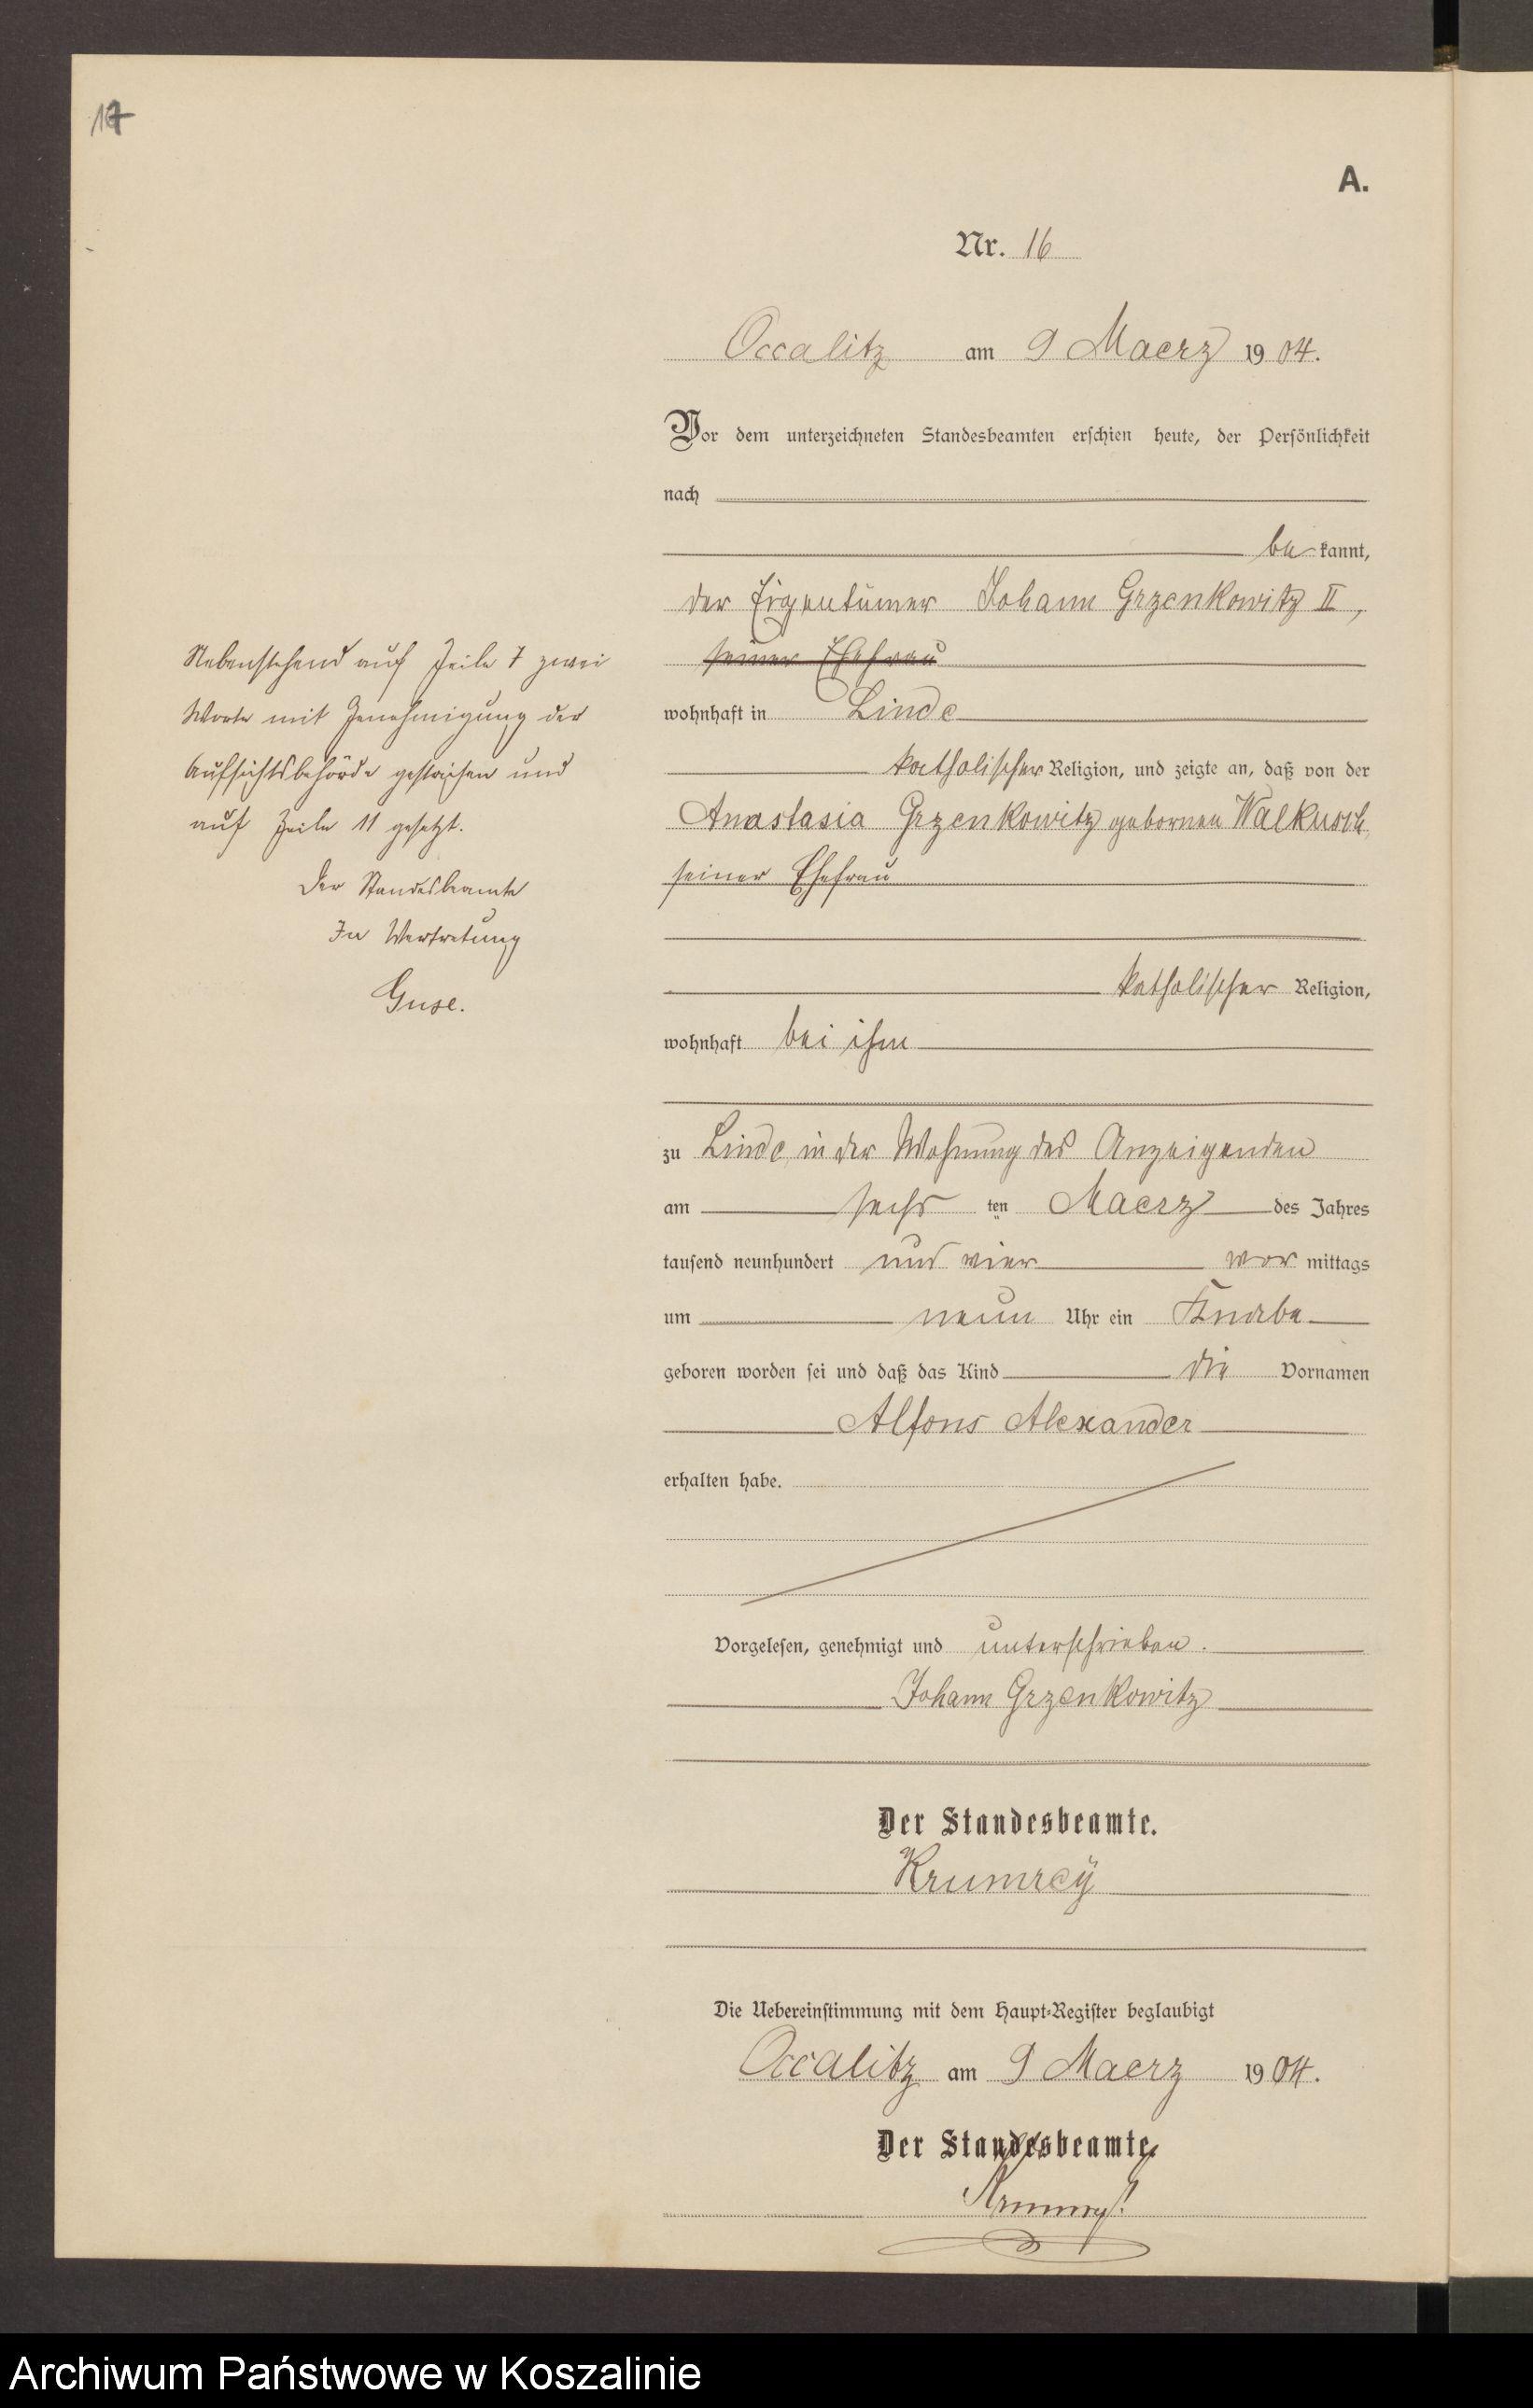 17
A.
Nr. 16
Occalitz am 9 Maerz 1904.
Vor dem unterzeichneten Standesbeamten erschien heute, der Persönlichkeit
nach
be kannt,
der Eigentümer Johann Grzenkowitz II,
seiner Ehefrau
wohnhaft in Linde
katholischer Religion, und zeigte an, daß von der
Anastasia Grzenkowitz gebornen Walkusch,
seiner Ehefrau
katholischer Religion,
wohnhaft bei ihm
zu Linde, in der Wohnung des Anzeigenden
am sechs ten Maerz des Jahres
tausend neunhundert und vier vor mittags
um neun Uhr ein Knabe
geboren worden sei und daß das Kind die Vornamen
Alfons Alexander
erhalten habe.
Vorgelesen, genehmigt und unterschrieben.
Johann Grzenkowitz
Der Standesbeamte.
Krumrey
Die Uebereinstimmung mit dem Haupt-Register beglaubigt
Occalitz am 9 Maerz 1904.
Der Standesbeamte.
Krumrey
Nebenstehend auf Zeile 7 zwei
Worte mit Genehmigung der
Aufsichtsbehörde gestrichen und
auf Zeile 11 gesetzt.
Der Standesbeamte
In Vertretung
Guse.
Archiwum Państwowe w Koszalinie